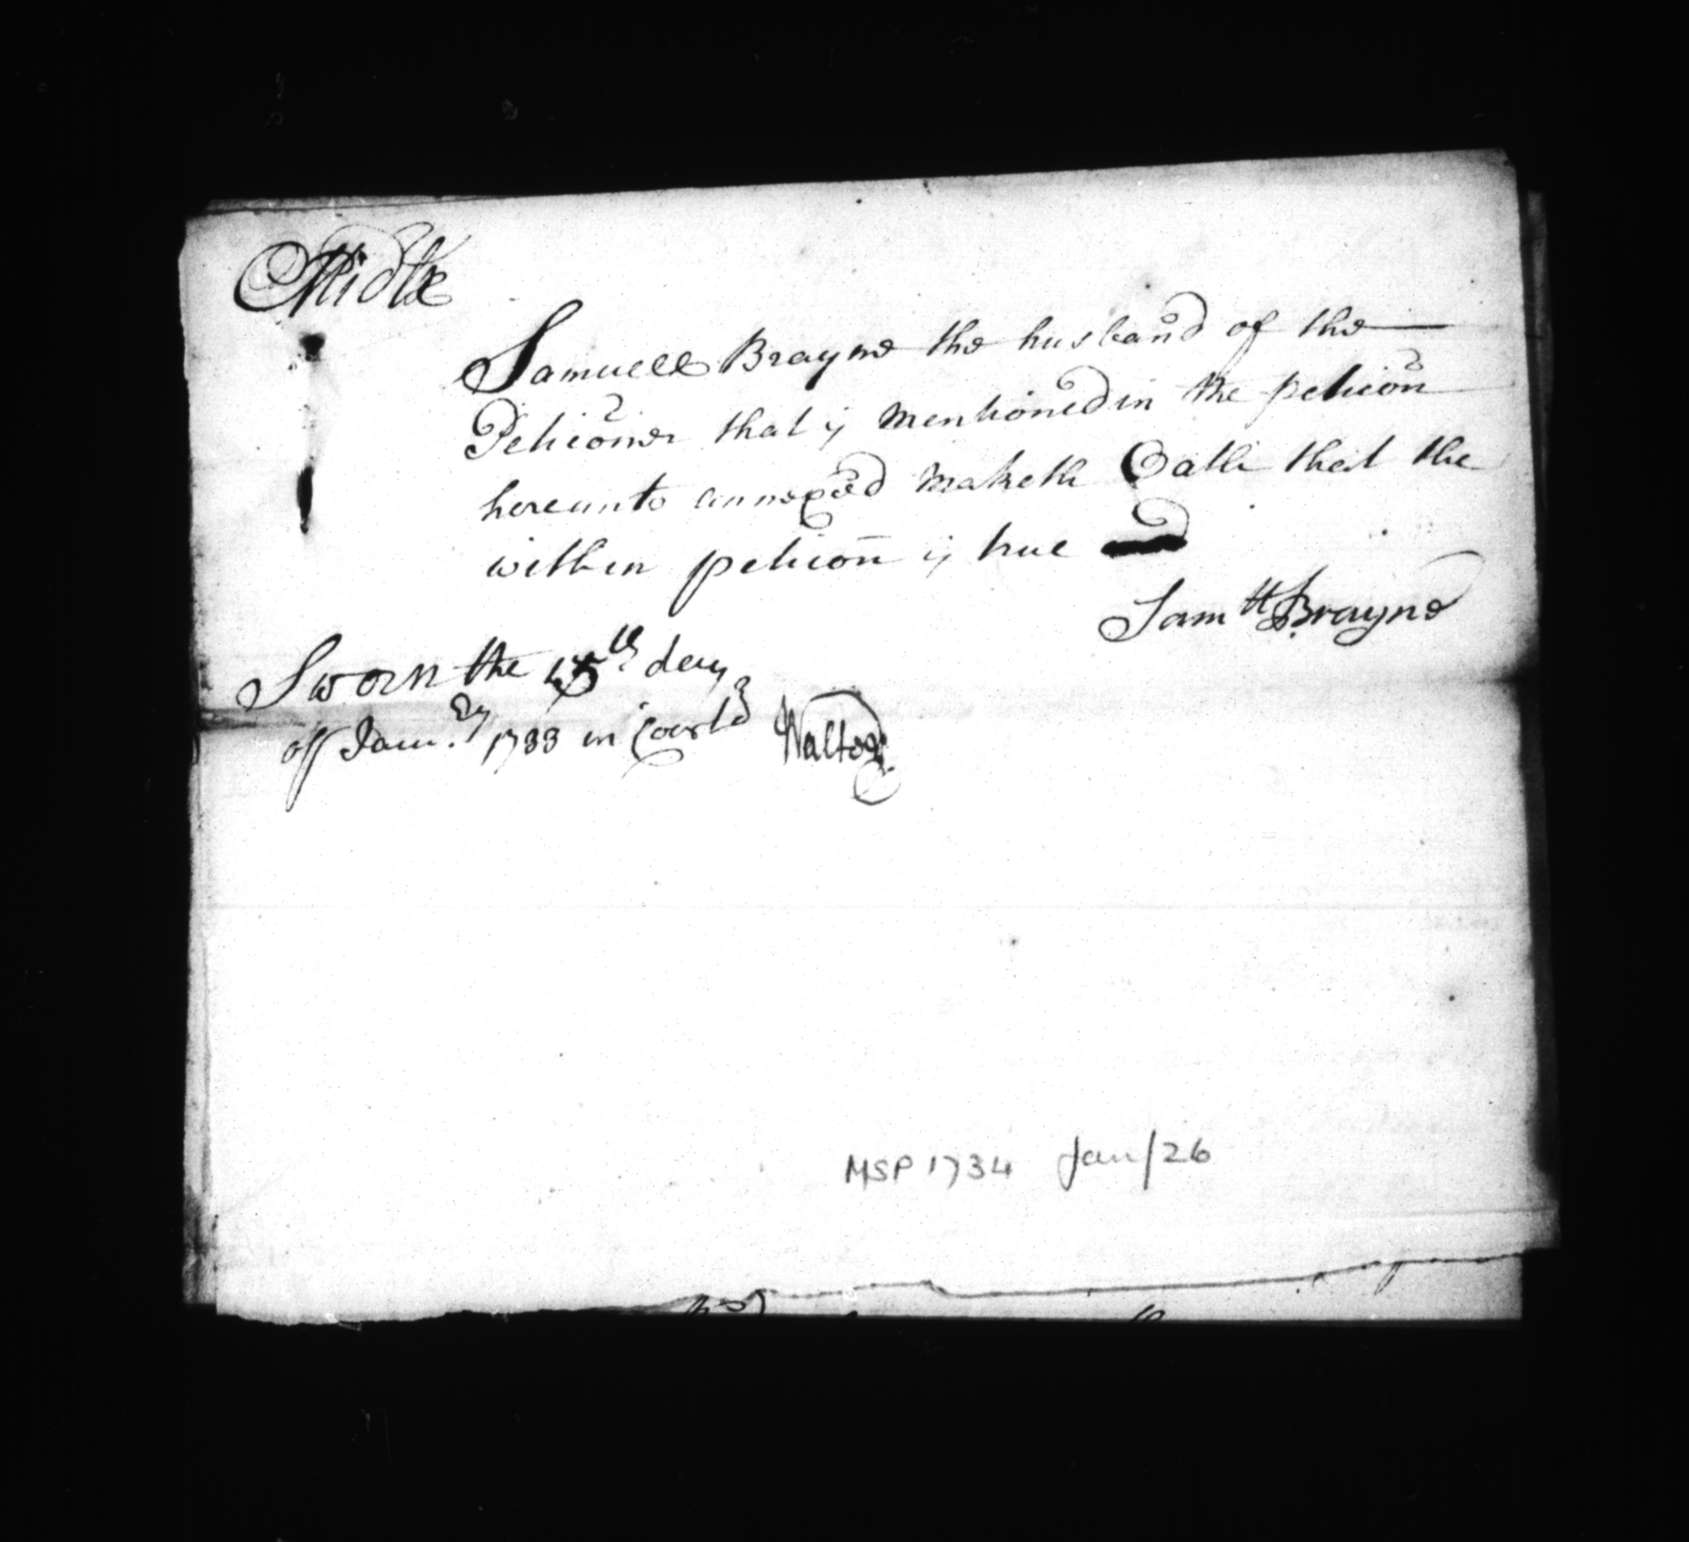 Midlx
Samuell Brayne the husband of the
Peticõner that is mentioned in the peticõn
hereunto annexed maketh Oath that the
within peticõn is true
Samll Brayne
Sworn the 15th day
off Janry 1733 in Court
Walter
MSP 1734 Jan/26